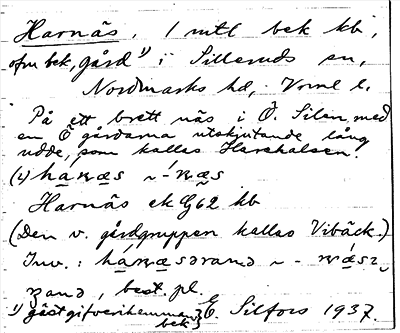 Harnäs, 1 mtl bek kb,
ofvn bek, gård¹⁾ i Silleruds sn,
Nordmarks hd, Vrml l.
På ett brett näs i Ö. Silen, med
en Ö gårdarna utskjutande lång
udde, som kallas Harehalsen.
Harnäs ek G62 kb
(Den v. gårdgruppen kallas Vibäck.)
Inv.:
best. pl.
¹⁾ gästgifverihemman
bek} E. Silfors 1937.